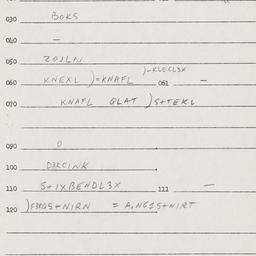 030 BOKS
040 —
050 ZOJLN
)-KLECL3X
060 KNEXL )=KNAFL 061 —
070 KNAFL QLAT )S+TEKL
090 O
100 D3RCINK
110 S+IXBENDL3X 111 —
120 )F3RQS+NIRN = A,NG1S+NIRT